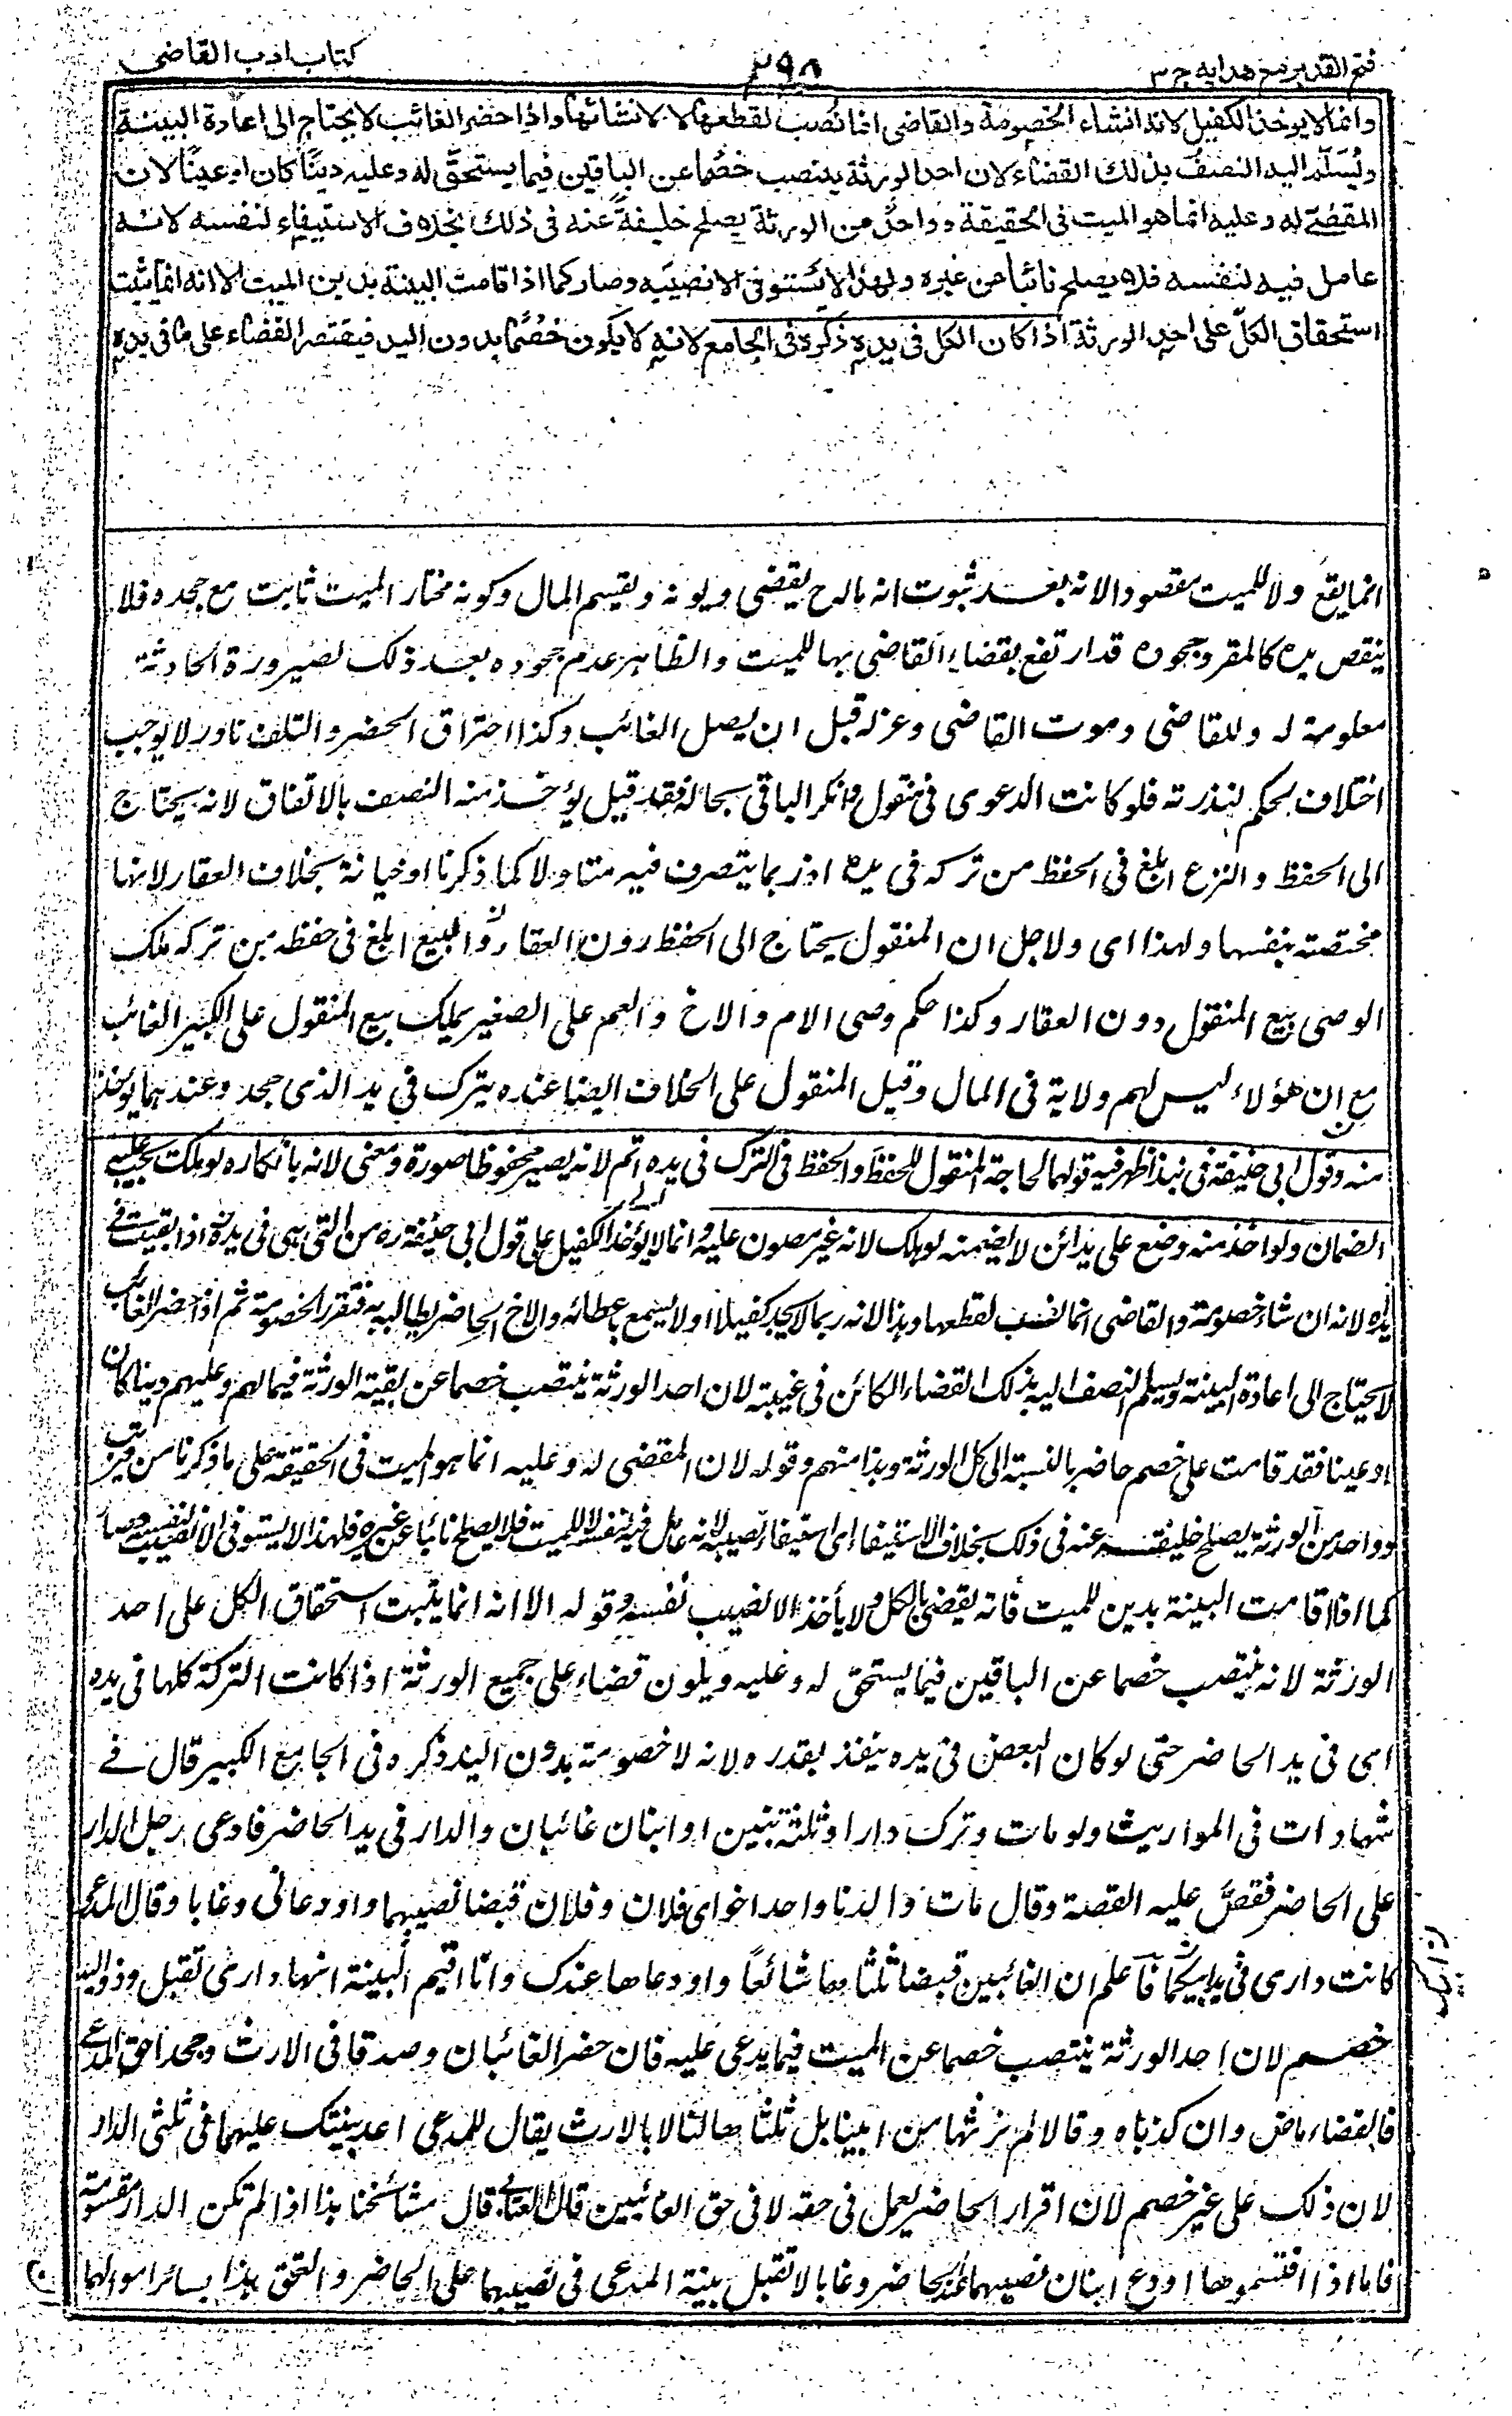 فتح القدير مع هدايه ج ٣
٢٩٨
كتاب ادب القاضى
وانما لا يوخذ الكفيل لانه انشاء الخصومة والقاضى انما نُصب لقطعها لا لانشائها واذا حضر الغائب لا يحتاج الى اعادة البينة
ويُسَلَّم اليه النصفُ بذلك القضاء لان احد الورثة ينصب خصمًا عن الباقين فيما يستحقّ له وعليه دينًا كان او عينًا لان
المقضٰے له وعليه انما هو الميت فى الحقيقة وواحدٌ من الورثة يصلح خليفةً عنه فى ذلك بخلاف الاستيفاء لنفسه لانه
عامل فيه لنفسه فلا يصلح نائبا عن غيره ولهذا لا يَستوفى الا نصيبَه وصار كما اذا قامت البينة بدين الميت الا انه انما يثبت
استحقاق الكلّ على احد الورثة اذا كان الكل فى يده ذكره فى الجامع لانه لا يكون خصمًا بدون اليد فيقتصر القضاء على ما فى يده
انما يقع ولا للميت مقصودا لانه بعد ثبوت انه بالح يقضى ديونه ويقسم المال وكونه مختار الميت ثابت مع جحده فلا
ينقص يده كالمقر وجحوده قد ارتفع بقضاء القاضى بها للميت والظاهر عدم جحوده بعد ذلك لصيرورة الحادثة
معلومة له وللقاضى وموت القاضى وعزله قبل ان يصل الغائب وكذا احتراق المحضر والتلف نادر لا يوجب
اختلاف لحكم لندرته فلو كانت الدعوى فى منقول وانكر الباقى بحاله فقد قيل يؤخذ منه النصف بالاتفاق لانه يحتاج
الى الحفظ والنزع ابلغ فى الحفظ من تركه فى يده اذ ربما يتصرف فيه متاولا كما ذكرنا او خيانة بخلاف العقار لانها
مختصته بنفسها ولهذا اى ولاجل ان المنقول يحتاج الى الحفظ دون العقار والبيع ابلغ فى حفظه من تركه ملك
الوصى بيع المنقول دون العقار وكذا حكم وصى الام والاخ والعم على الصغير يملك بيع المنقول على الكبير الغائب
مع ان هؤلاء ليس لهم ولاية فى المال وقيل المنقول على الخلاف ايضا عنده يترك فى يد الذى جحد وعندهما يوخذ
منه وقول ابى حنيفة فى هذا اظهر فيه قولهما لحاجة المنقول للحفظ والحفظ فى الترك فى يده اتم لانه يصير محفوظا صورة ومعنى لانه بانكاره لو هلكت يجب عليه
الضمان ولو اخذ منه وضع على يد امين لا يضمنه لو هلك لانه غير مضمون عليه وانما لا يؤخذ الكفيل على قول ابى حنيفة ره من التى هى فى يده اذا بقيت فے
يده لانه انشاء خصومة والقاضى انما نصب لقطعها وهذا لانه ربما لا يجد كفيلا او لا يسمح باعطائه والاخ الحاضر يطالبه به فتقرر الخصومة ثم اذا حضر الغائب
لا يحتاج الى اعادة البينة ويسلم النصف اليه بذلك القضاء الكائن فى غيبته لان احد الورثة ينتصب خصما عن بقية الورثة فيما لهم وعليهم دينا كان
او عينا فقد قامت على خصم حاضر بالنسبة الى كل الورثة وهذا منهم وقوله لان المقضى له وعليه انما هو الميت فى الحقيقة على ما ذكرنا من قريب
وواحد من الورثة يصلح خليفة عنه فى ذلك بخلاف الاستيفاء اى استيفاء نصيبه لانه عامل فيه لنفسه لا للميت فلا يصلح نائبا عن غيره فلهذا لا يستوفى الا نصيبه وصار
كما اذا قامت البينة بدين للميت فانه يقضى بالكل ولا يأخذ الا نصيب نفسه وقوله الا انه انما يثبت استحقاق الكل على احد
الورثة لانه ينتصب خصما عن الباقين فيما يستحق له وعليه ويكون قضاء على جميع الورثة اذا كانت التركة كلها فى يده
اى فى يد الحاضر حتى لو كان البعض فى يده ينفذ بقدره لانه لا خصومة بدون اليد ذكره فى الجامع الكبير قال فے
شهادات فى المواريث ولو مات وترك دارا وثلثة بنين او ابنان غائبان والدار فى يد الحاضر فادعى رجل الدار
على الحاضر فقص عليه القصة وقال مات والدنا واحد اخواى فلان وفلان قبضا نصيبهما واودعانى وغابا وقال المدعى
كانت دارى فى يد ابيكما فاعلم ان الغائبين قبضا ثلثا ها شائعاً واودعاها عندك وانا اقيم البينة انها دارى تقبل وذو اليد
خصم لان احد الورثة ينتصب خصما عن الميت فيما يدعى عليه فان حضر الغائبان وصدقا فى الارث وجحدا حق المدعے
فالقضاء ماض وان كذباه وقالا لم نرثها من ابينا بل ثلثا ها لنا لا بالارث يقال للمدعى اعد بينتك عليهما فى ثلثى الدار
لان ذلك على غير خصم لان اقرار الحاضر يعمل فى حقه لا فى حق الغائبين قال العتابى قال مشائخنا هذا اذا لم تكن الدار مقسومة
فاما اذا اقتسموها اودع ابنان نصيبهما عند الحاضر وغابا لا تقبل بينة المدعى فى نصيبهما على الحاضر والتحق هذا بسائر اموالهما